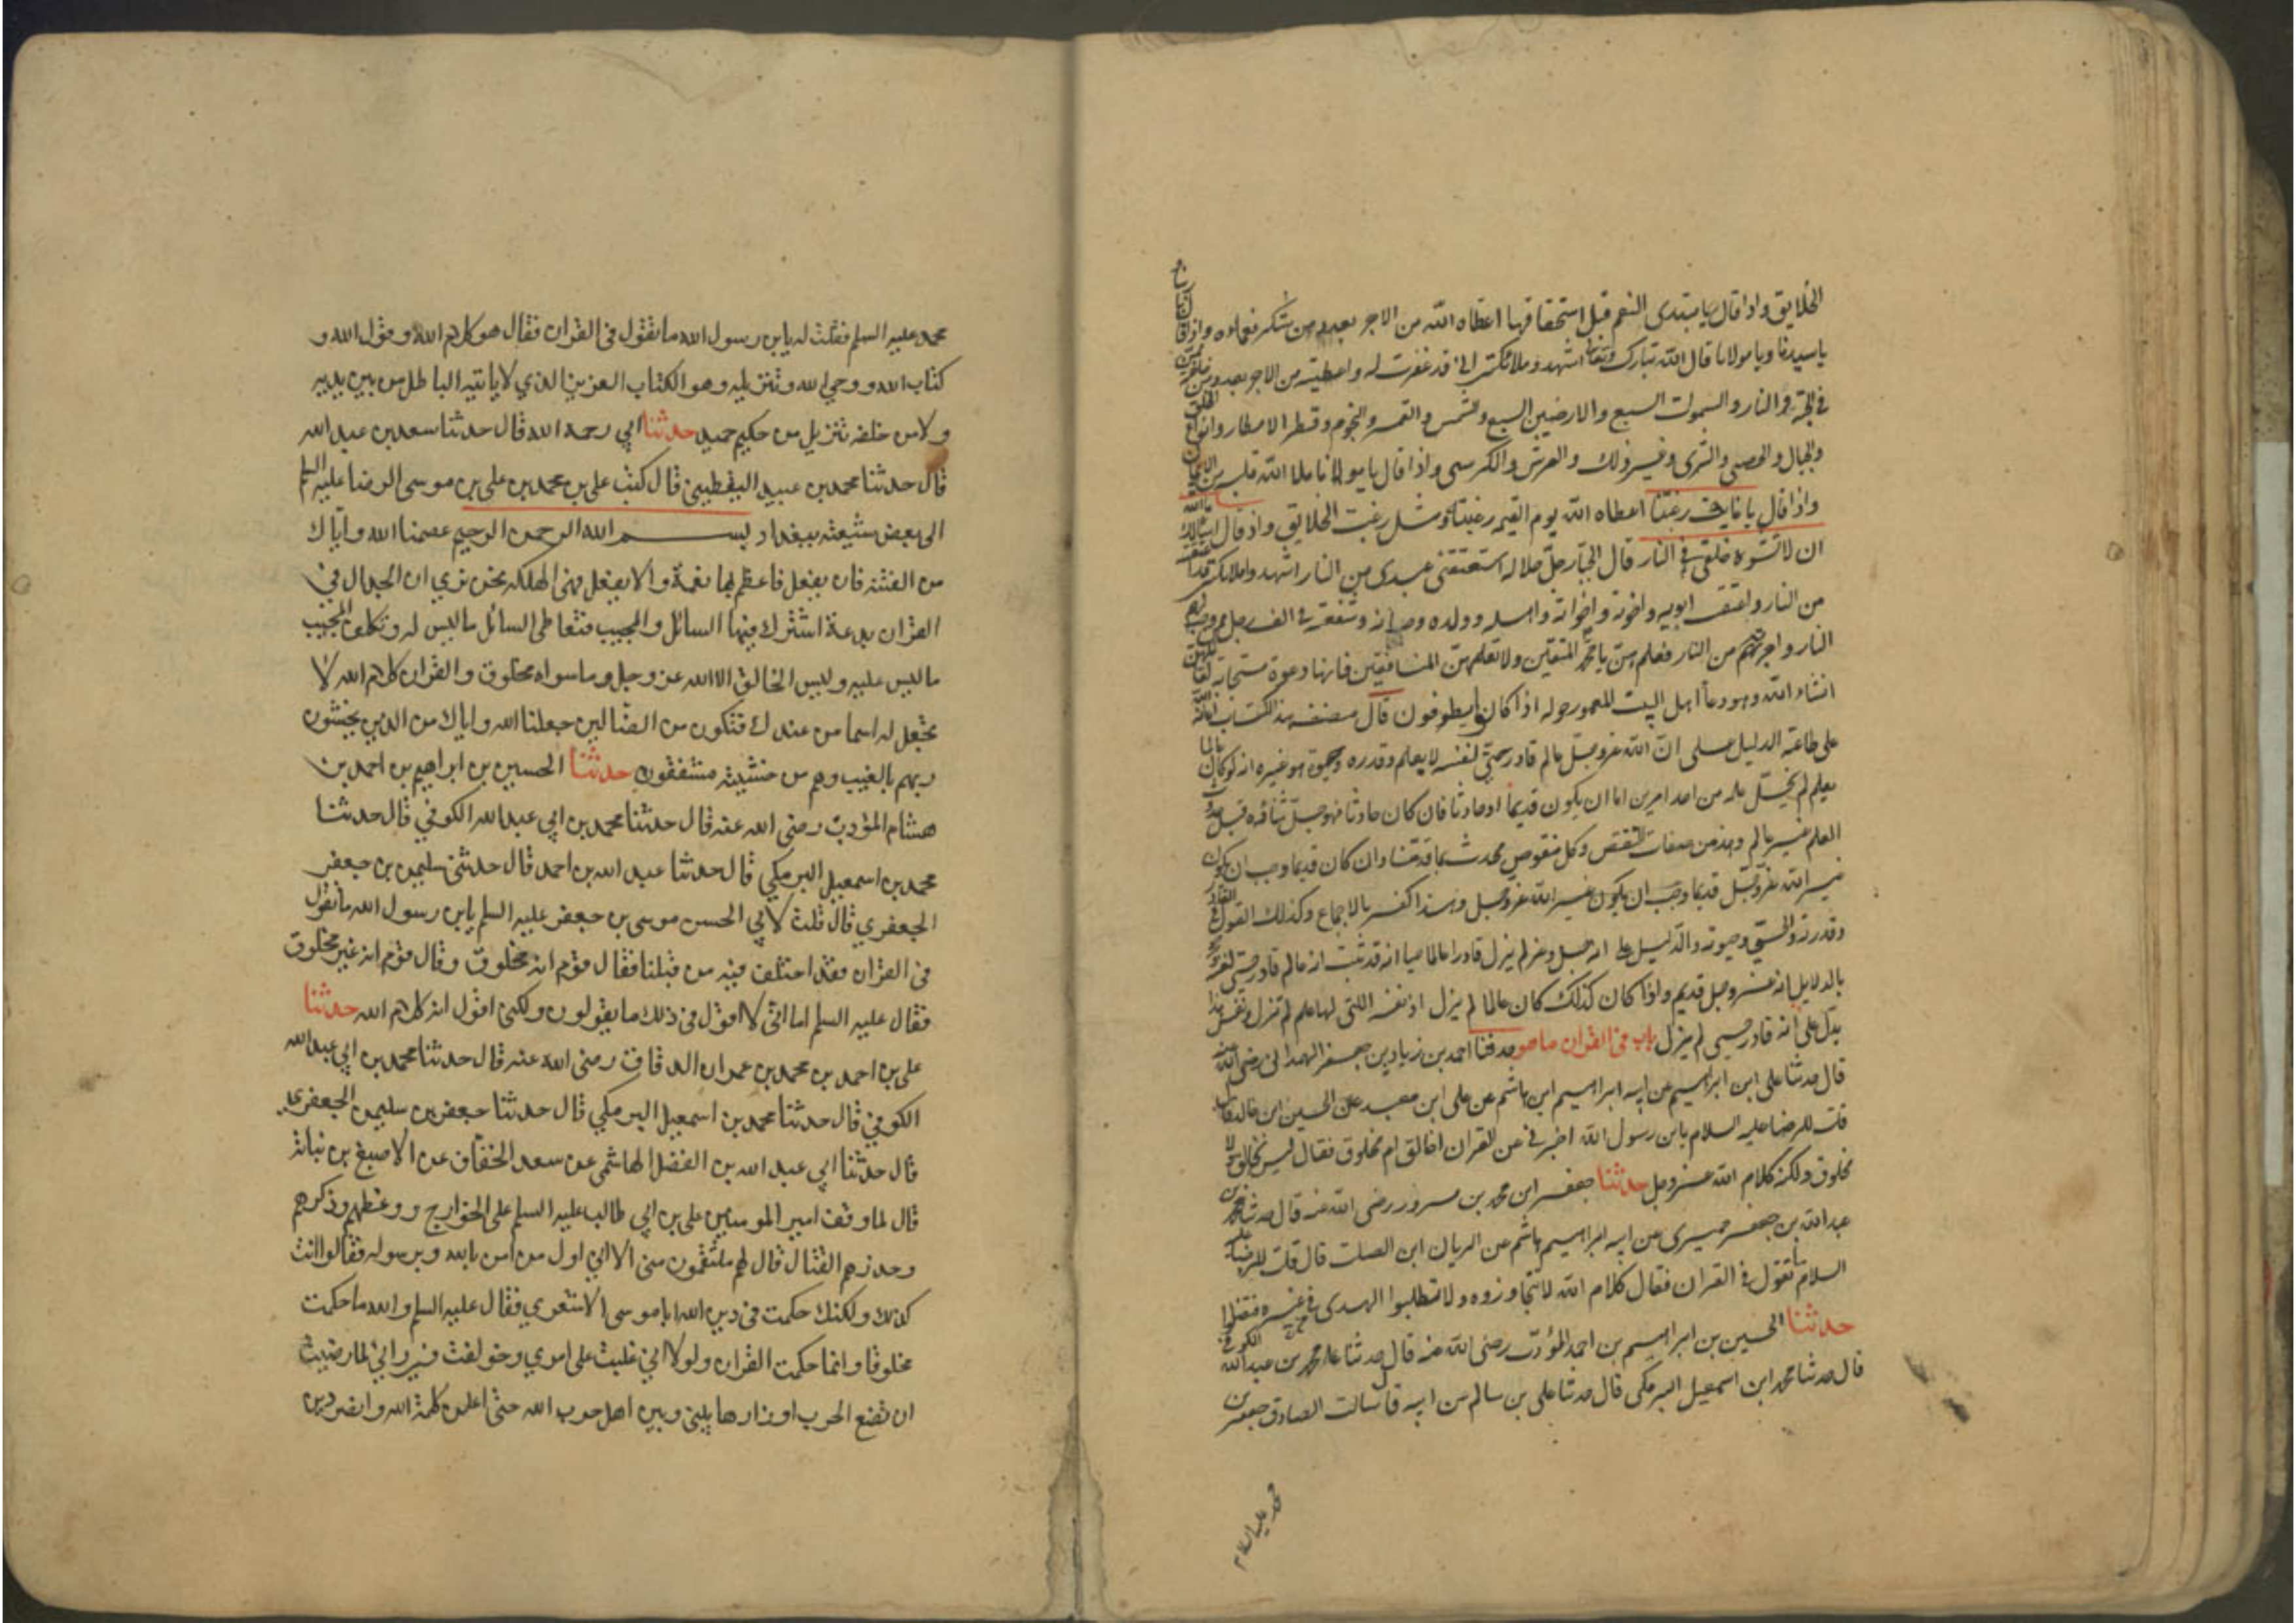 الخلايق واذا قال يا مبتدى النعم قبل استحقاقها اعطاه الله من الاجر بعدد من شكر نعماءه واذا قال
ياسيدنا ويا مولانا قال الله تبارك وتعالى اشهدوا ملائكتى انى قد غفرت له واعطيته من الاجر بعدد من خلقته
فى الجنة والنار والسموات السبع والارضين السبع والشمس والقمر والنجوم وقطر الامطار وانواع الخلق
والجبال والحصى والثرى وغير ذلك والعرش والكرسى واذا قال يا مولانا ملا الله قلبه من الايمان
واذا قال يا غاية رغبتنا اعطاه الله يوم القيمه رغبته ومثل رغبت الخلايق واذ قال اسالك يا الله
ان لا تشوه خلقى فى النار قال الجبار جل جلاله استعتقنى عبدى من النار اشهدوا ملائكتى قد اعتقته
من النار واعتقت ابويه واخوته واخواته واهله وولده وجيرانه وشفعته فى الف رجل ممن وجب لهم
النار واجرتهم من النار فعلمهن يا محمد المتقين ولا تعلمهن المنافقين فانها دعوة مستجابة لقائلهن
انشاء الله وهو دعاء اهل البيت المعمور حوله اذا كانوا يطوفون قال مصنف هذا الكتاب اعانه الله
على طاعته الدليل على ان الله عز وجل عالم قادر حى لنفسه لا بعلم وقدره وحيوة هو غيره انه لو كان عالما
بعلم لم يخل علمه من احد امرين اما ان يكون قديما او حادثا فان كان حادثا فهو جل ثنائه قبل حدوث
العلم غير عالم وهذ من صفات النقص وكل منقوص محدث بما قدمنا وان كان قديما وجب ان يكون
غير الله عز وجل قديما وجب ان يكون غير الله عز وجل وهذا كفر بالاجماع وكذلك القول فى القادر
وقدرته والحى وحيوته والدليل على انه جل وعز لم يزل قادرا عالما حيا انه قد ثبت انه عالم قادر حى لنفسه
بالدلايل انه عز وجل قديم واذا كان كذلك كان عالما لم يزل اذ نفسه اللتى لها علم لم تزل ونفس هذا
يدل على انه قادر حى لم يزل باب فى القران ما هو حدثنا احمد بن زياد بن جعفر الهمدانى رضى الله عنه
قال حدثنا على ابن ابراهيم عن ابيه ابراهيم ابن هاشم عن على ابن معبد عن الحسين ابن خالد قال
قلت للرضا عليه السلام يابن رسول الله اخبرنى عن القران اخالق ام مخلوق فقال ليس بخالق ولا
مخلوق ولكنه كلام الله عز وجل حدثنا جعفر ابن محمد بن مسرور رضى الله عنه قال حدثنا محمد بن
عبد الله بن جعفر حميرى عن ابيه ابراهيم هاشم عن الريان ابن الصلت قال قلت للرضا عليه
السلام ما تقول فى القران فقال كلام الله لا تتجاوزوه ولا تطلبوا الهدى فى غيره فتضلوا
حدثنا الحسين بن ابراهيم بن احمد المؤدب رضى الله عنه قال حدثنا محمد بن عبد الله الكوفى
قال حدثنا محمد ابن اسمعيل البرمكى قال حدثنا على بن سالم عن ابيه قال سالت الصادق جعفر بن
محمد عليه السلام
محمد عليه السلم فقلت له يا بن رسول الله ما تقول فى القران فقال هو كلام الله وقول الله و
كتاب الله ووحي الله وتنزيله وهو الكتاب العزيز الذي لا ياتيه الباطل من بين يديه
ولا من خلفه تنزيل من حكيم حميد حدثنا ابي رحمه الله قال حدثنا سعد بن عبد الله
قال حدثنا محمد بن عبيد اليقطيني قال كتب على بن محمد بن على بن موسى الرضا عليه السلم
الى بعض شيعته ببغداد بسم الله الرحمن الرحيم عصمنا الله واياك
من الفتنة فان يفعل فاعظم بها نعمة والا يفعل فهى الهلكه نحن نري ان الجدال فى
القران بدعة اشترك فيها السائل والمجيب فتعاطى السائل ما ليس له وتكلف المجيب
ما ليس عليه وليس الخالق الا الله عز وجل وما سواه مخلوق والقران كلام الله لا
تجعل له اسما من عندك فتكون من الضالين جعلنا الله واياك من الذين يخشون
ربهم بالغيب وهم من خشيته مشفقون حدثنا الحسين بن ابراهيم بن احمد بن
هشام المؤدب رضى الله عنه قال حدثنا محمد بن ابي عبد الله الكوفي قال حدثنا
محمد بن اسمعيل البرمكي قال حدثنا عبد الله بن احمد قال حدثنى سليمن بن جعفر
الجعفري قال قلت لابي الحسن موسى بن جعفر عليه السلم يابن رسول الله ما تقول
فى القران فقد اختلف فيه من قبلنا فقال قوم انه مخلوق وقال قوم انه غير مخلوق
فقال عليه السلم اما انى لا اقول فى ذلك ما يقولون ولكنى اقول انه كلام الله حدثنا
على بن احمد بن محمد بن عمران الدقاق رضى الله عنه قال حدثنا محمد بن ابي عبد الله
الكوفي قال حدثنا محمد بن اسمعيل البرمكي قال حدثنا جعفر بن سليمن الجعفري
قال حدثنا ابي عبد الله بن الفضل الهاشمى عن سعد الخفاف عن الاصبغ بن نباته
قال لما وقف امير المومنين على بن ابي طالب عليه السلم على الخوارج ووعظهم وذكرهم
وحذرهم القتال قال لهم ما تنقمون منى الا انى اول من امن بالله وبرسوله فقالوا انت
كذلك ولكنك حكمت فى دين الله ابا موسى الاشعري فقال عليه السلم والله ما حكمت
مخلوقا وانما حكمت القران ولولا انى غلبت على امري وخولفت فى رايي لما رضيت
ان تضع الحرب اوزارها بينى وبين اهل حرب الله حتى اعلى كلمة الله وانصر دين